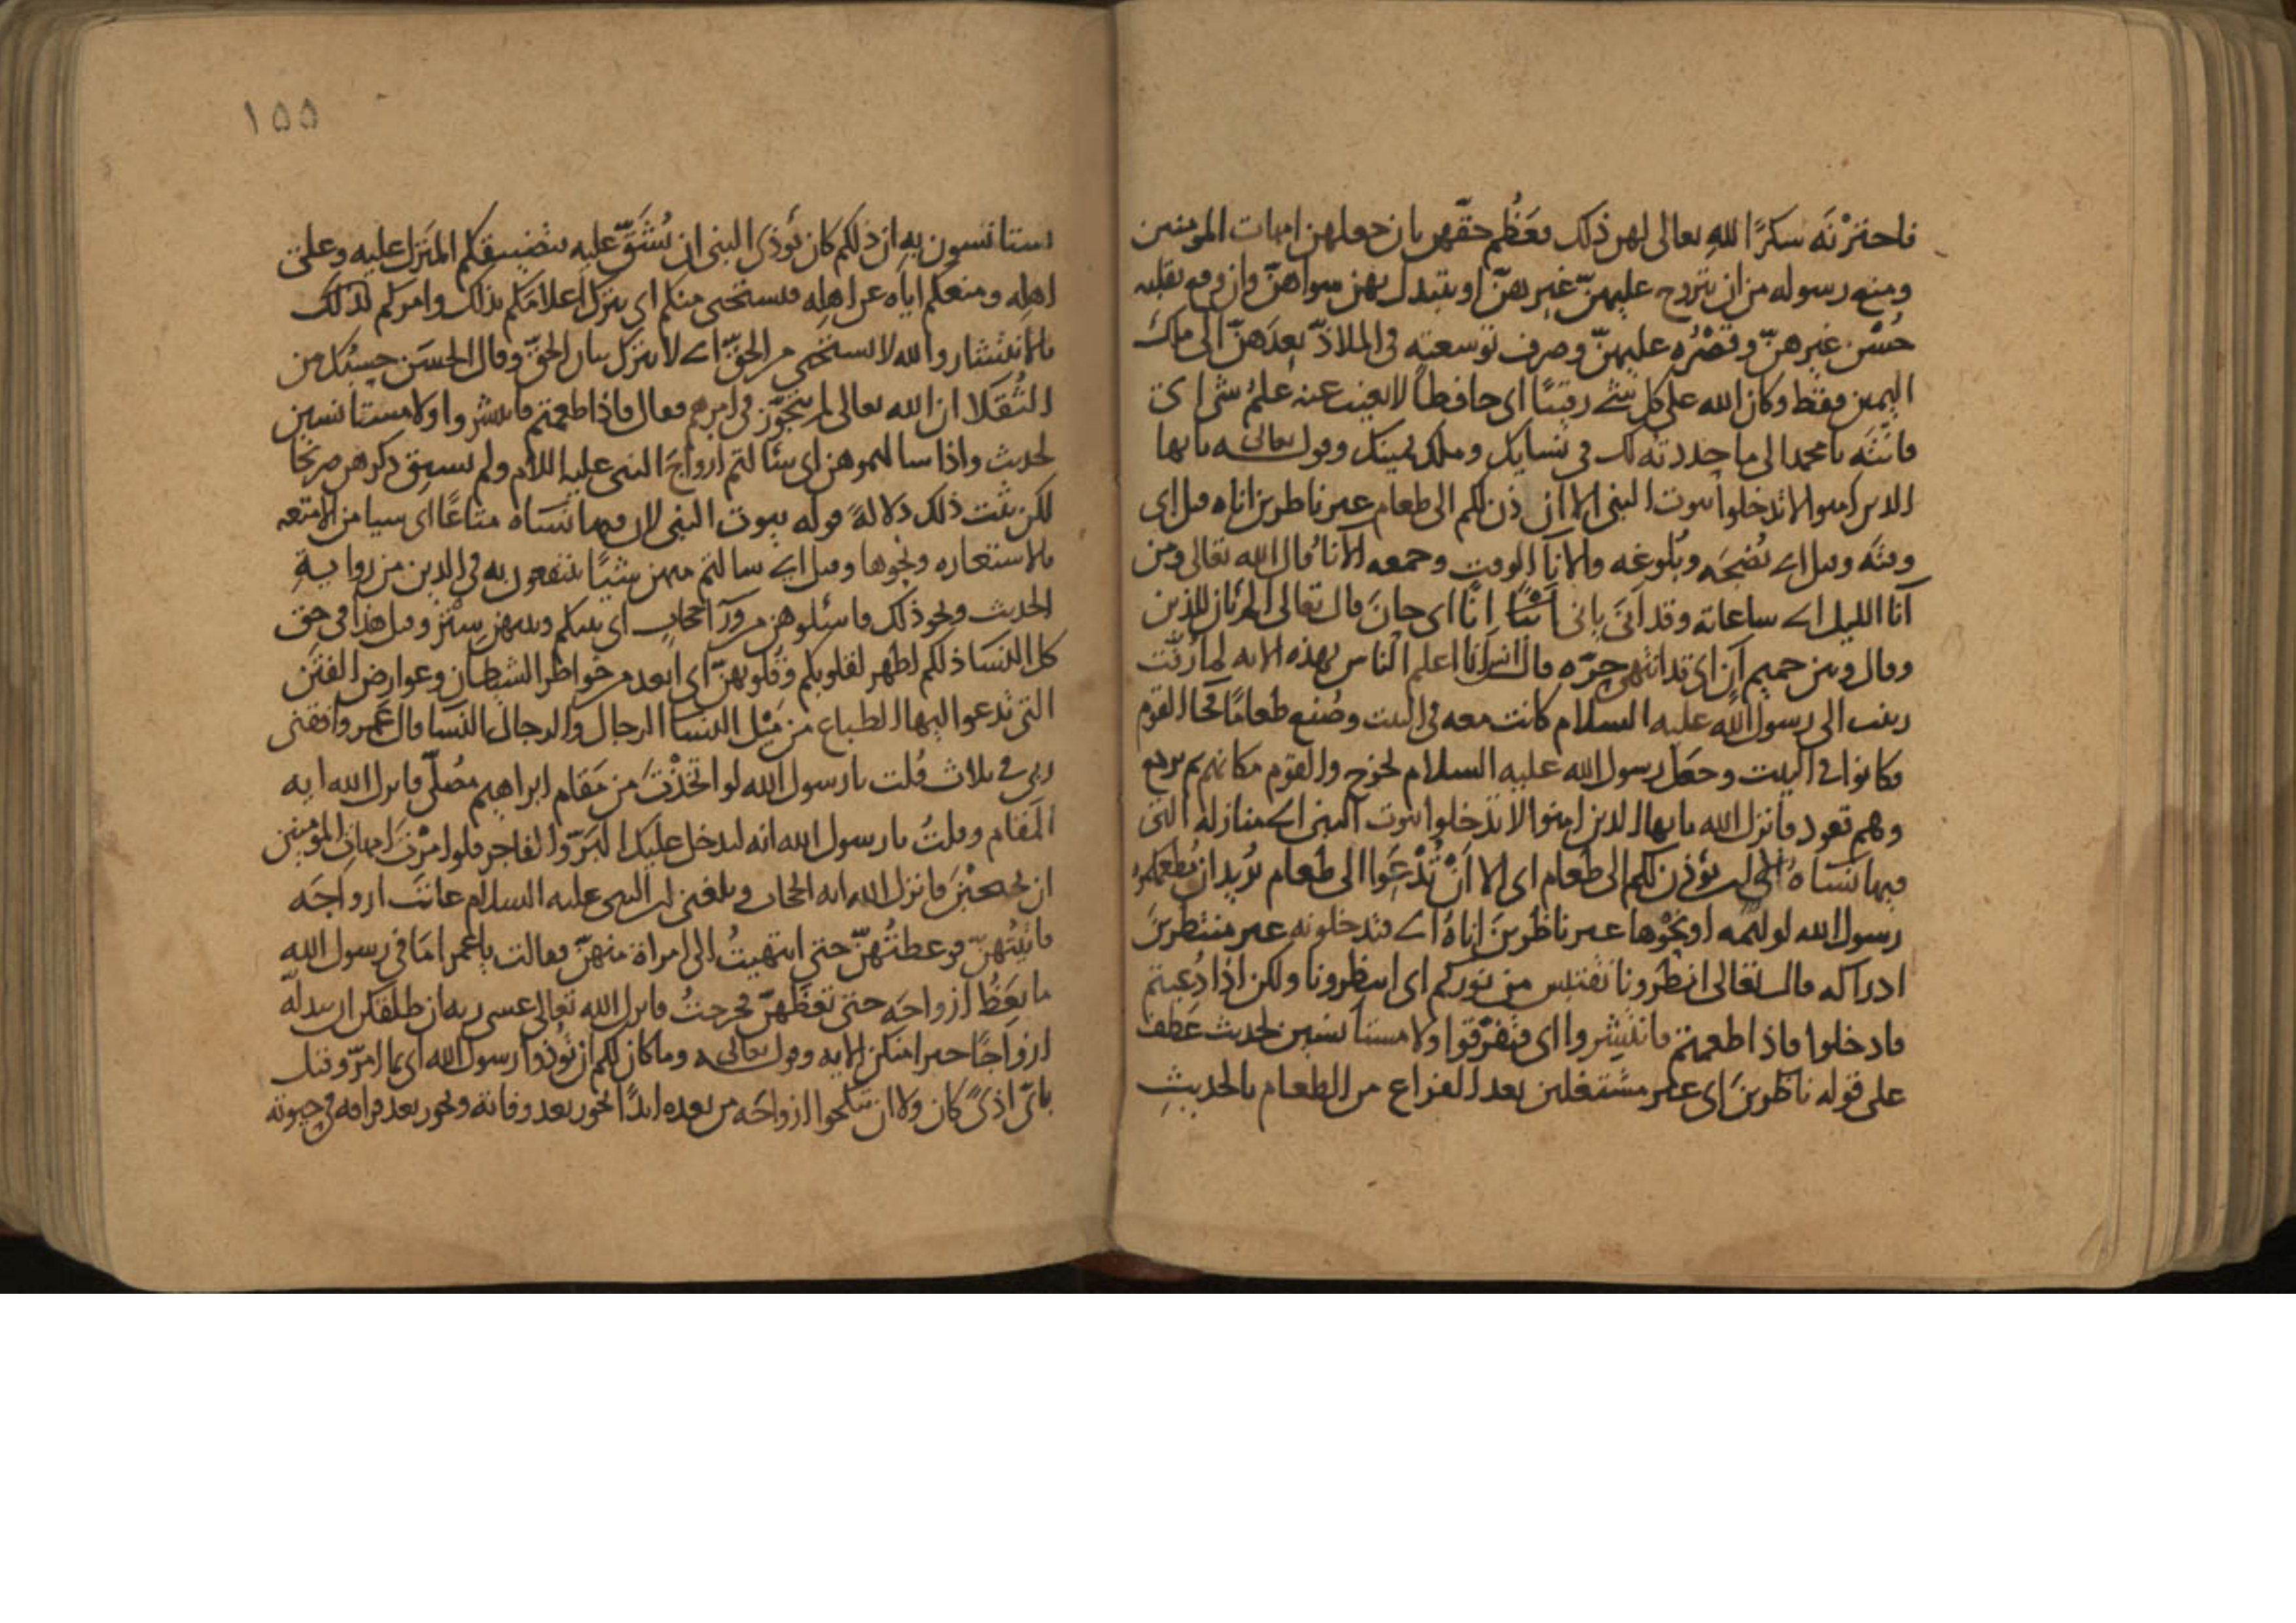 فاخترْنَه شكرًا للهِ تعالى لهن ذلك فعَظُم حقّهن بان جعلهن امهات المومنين
ومنع رسوله من ان يتزوج عليهنّ غيرهنّ او يتبدل بهن سواهنّ وان وقع بقلبه
حُسْن غيرهنّ وقصْرُه عليهنّ وصرف توسعته في الملاذّ بعدَهنّ الى ملك
اليمين فقط وكان الله على كل شئ رقيبًا اى حافظا لا يعيب عنه علمُ شى اى
فانتَه يا محمد الى ما حددته لك في نسايك وملك يمينك وقوله تعالى يا ايها
الذين امنوا لا تدخلوا بيوت النبى الا ان يوذن لكم الى طعام غير ناظرين اناه قيل اى
وقتَه وقيل اى نُضجَه وبُلوغه والانَا الوقت وجمعه الآناءُ قال الله تعالى ومن
آنا الليل اى ساعاته وقد اَنَى يانى انًا اى حانَ قال تعالى الم يان للذين
وقال وبين حميم آن اى قد انتهى حرّه قال انس اَنا اعلم الناس بهذه الايه لما زُفّت
زينب الى رسول الله عليه السلام كانت معه في البيت وصُنع طعامًا فجا القوم
فكانوا في البيت وجعل رسول الله عليه السلام يخرج والقوم مكانهم ثم يرجع
وهم قعود فانزل الله يا ايها الذين امنوا لا تدخلوا بيوت النبى اى منازله التى
فيها نسَاهُ الى ان يؤذن لكم الى طعام اى الا اَنْ تُدْعَوا الى طعام يُريد ان يُطعمكموه
رسول الله لوليمه او نحْوها غير ناظرينَ اناهُ اى فتدخلونه غير منتظرينَ
ادراكه قال تعالى انظرونا نقتبس من نوركم اى انتظرونا ولكن اذا دُعيتم
فادخلوا فاذا طعمتم فانتشروا اى فتفرّقوا ولا مستانسين لحديث عَطف
على قوله ناظرينَ اى غير مشتغلين بعد الفراغ من الطعام بالحديثِ
١٥٥
تستانسون بهِ ان ذلكم كان يُوذى النبى ان يُشَقّ عليه بتضييقكم المنزل عليه وعلى
اهله ومنعكم اياه عن اهلِه فيستحى منكم اى يترك اعلامَكم بذلك وامركم لذلك
بالانتشار والله لا يستحى من الحقّ اى لا يترك بيان الحقّ وقال الحسَن حسبُك من
الثُقَلا ان الله تعالى لم يتجوّز في امرهم فقال فاذا طعمتم فانتشروا ولا مستانسين
لحديث واذا سالتموهن اى سَالتم ازواجَ النبى عليه السلام ولم يسبق ذكرهن صريحًا
لكن يثبت ذلك دلالةً قوله بيوت النبى لان فيها نسَاه متاعًا اى شيا من الامتعه
بالاستعاره ونحوها وقيل اى سالتم منهن شيًا تنتفعون به في الدين من روايةِ
الحديث ونحو ذلك فاسئلوهن من ورآ حجابٍ اى بينكم وبينهن سِتْر وقيل هذا في حق
كل النسَا ذلكم اطهر لقلوبكم وقلوبهنّ اى ابعد من خواطر الشيطان وعوارض الفتَن
التى تدعوا اليها الطباع من مَيْل النسَا الى الرجال والرجال بالنسَا قال عُمر وافقنى
ربى في ثلاث قُلت يا رسول الله لو اتخذْتَ من مَقام ابراهيم مُصلّى فانزل الله ايه
المقام وقلتُ يا رسول الله انه ليدخل عليك البَرّ والفاجر فلو امرْتَ امهات المؤمنين
ان يحتجبْنَ فانزل الله ايه الحجاب وبلغنى ان النبى عليه السلام عاتب ازواجَه
فاتيتُهنّ فوعظتُهنّ حتى انتهيتُ الى امراة منهنّ فقالت يا عمر امَا في رسول الله
ما يعَظُ ازواجَه حتى تعظهنّ فخرجتُ فانزل الله تعالى عسى ربه ان طلقكن ان يبدله
ازواجًا خيرا منكن الايه وقوله تعالى وما كان لكم ان تُؤذوا رسول الله اى بما مرّ وقيل
باىّ اذىً كان ولا ان تنكحوا ازواجَه من بعده ابدًا يجوز بعد وفاته ويجوز بعد فراقه في حيوته